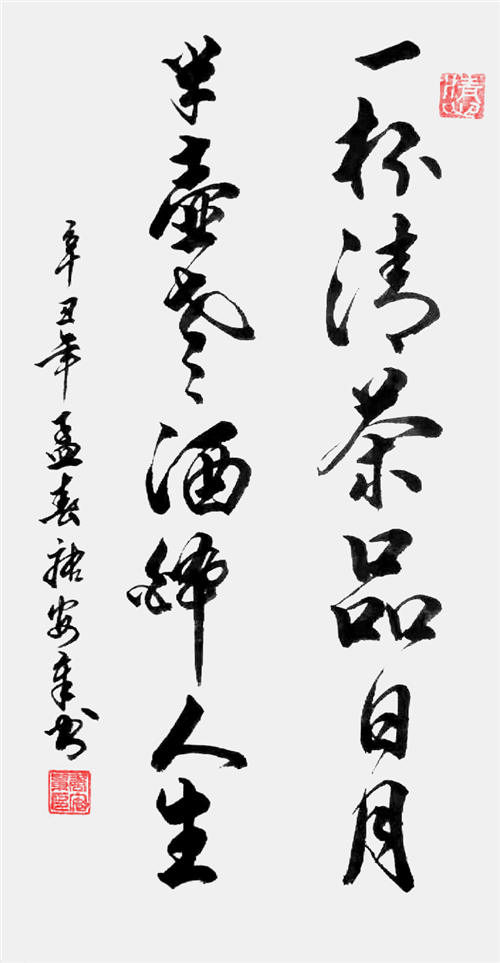 一杯清茶品日月
半壺酒醉人生
辛丑年孟春安书